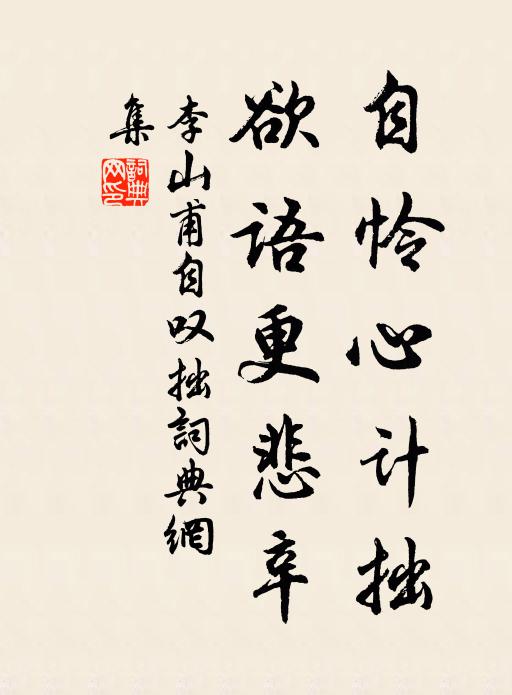 自怜心计拙
欲语更悲辛
李山甫自叹拙詞典網
集
詞典網印